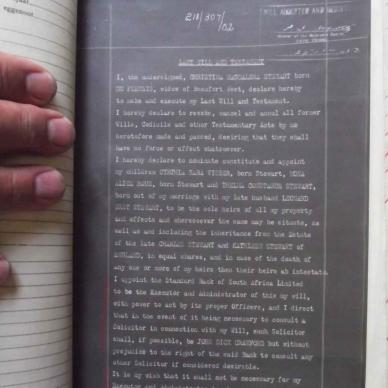 218/307/02
WILL ACCEPTED AND REGIST
LAST WILL AND TESTAMENT
I, the undersigned, CHRISTINA MAGDALENA STEWART born
DU PLESSIS, widow of Beaufort West, declare hereby
to make and execute my Last Will and Testament.
I hereby declare to revoke, cancel and annul all former
Wills, Codicils and other Testamentary Acts by me
heretofore made and passed, desiring that they shall
have no force or effect whatsoever.
I hereby declare to nominate constitute and appoint
my children CYNTHIA SARA VISSER, born Stewart, EDNA
ALICE born Stewart and THELMA CONSTANCE STEWART,
born out of my marriage with my late husband LEONARD
STEWART, to be the sole heirs of all my property
and effects and wheresoever the same may be situate, as
well as and including the inheritance from the Estate
of the late CHARLES STEWART and KATHLEEN STEWART of
ENGLAND, in equal shares, and in case of the death of
any one or more of my heirs then their heirs ab intestato.
I appoint the Standard Bank of South Africa Limited
to be the Executor and Administrator of this my will,
with power to act by its proper Officers, and I direct
that in the event of it being necessary to consult a
Solicitor in connection with my Will, such Solicitor
shall, if possible, be JOHN DICK CRAWFORD but without
prejudice to the right of the said Bank to consult any
other Solicitor if considered desirable.
It is my wish that it shall not be necessary for my